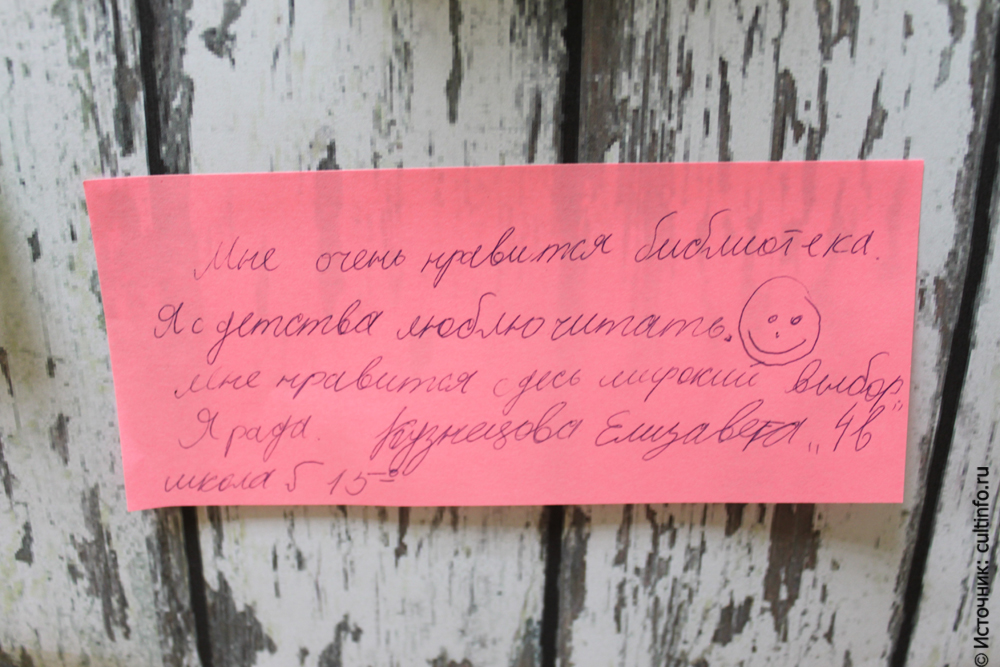 Мне очень нравится библиотека.
Я с детства люблю читать.
мне нравится сдесь широкий выбор.
Я рада. Кузнецова Елизавета „4в"
школа 15
© Источник: cultinfo.ru